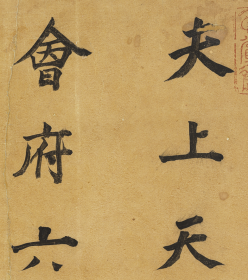 夫上天
會府六